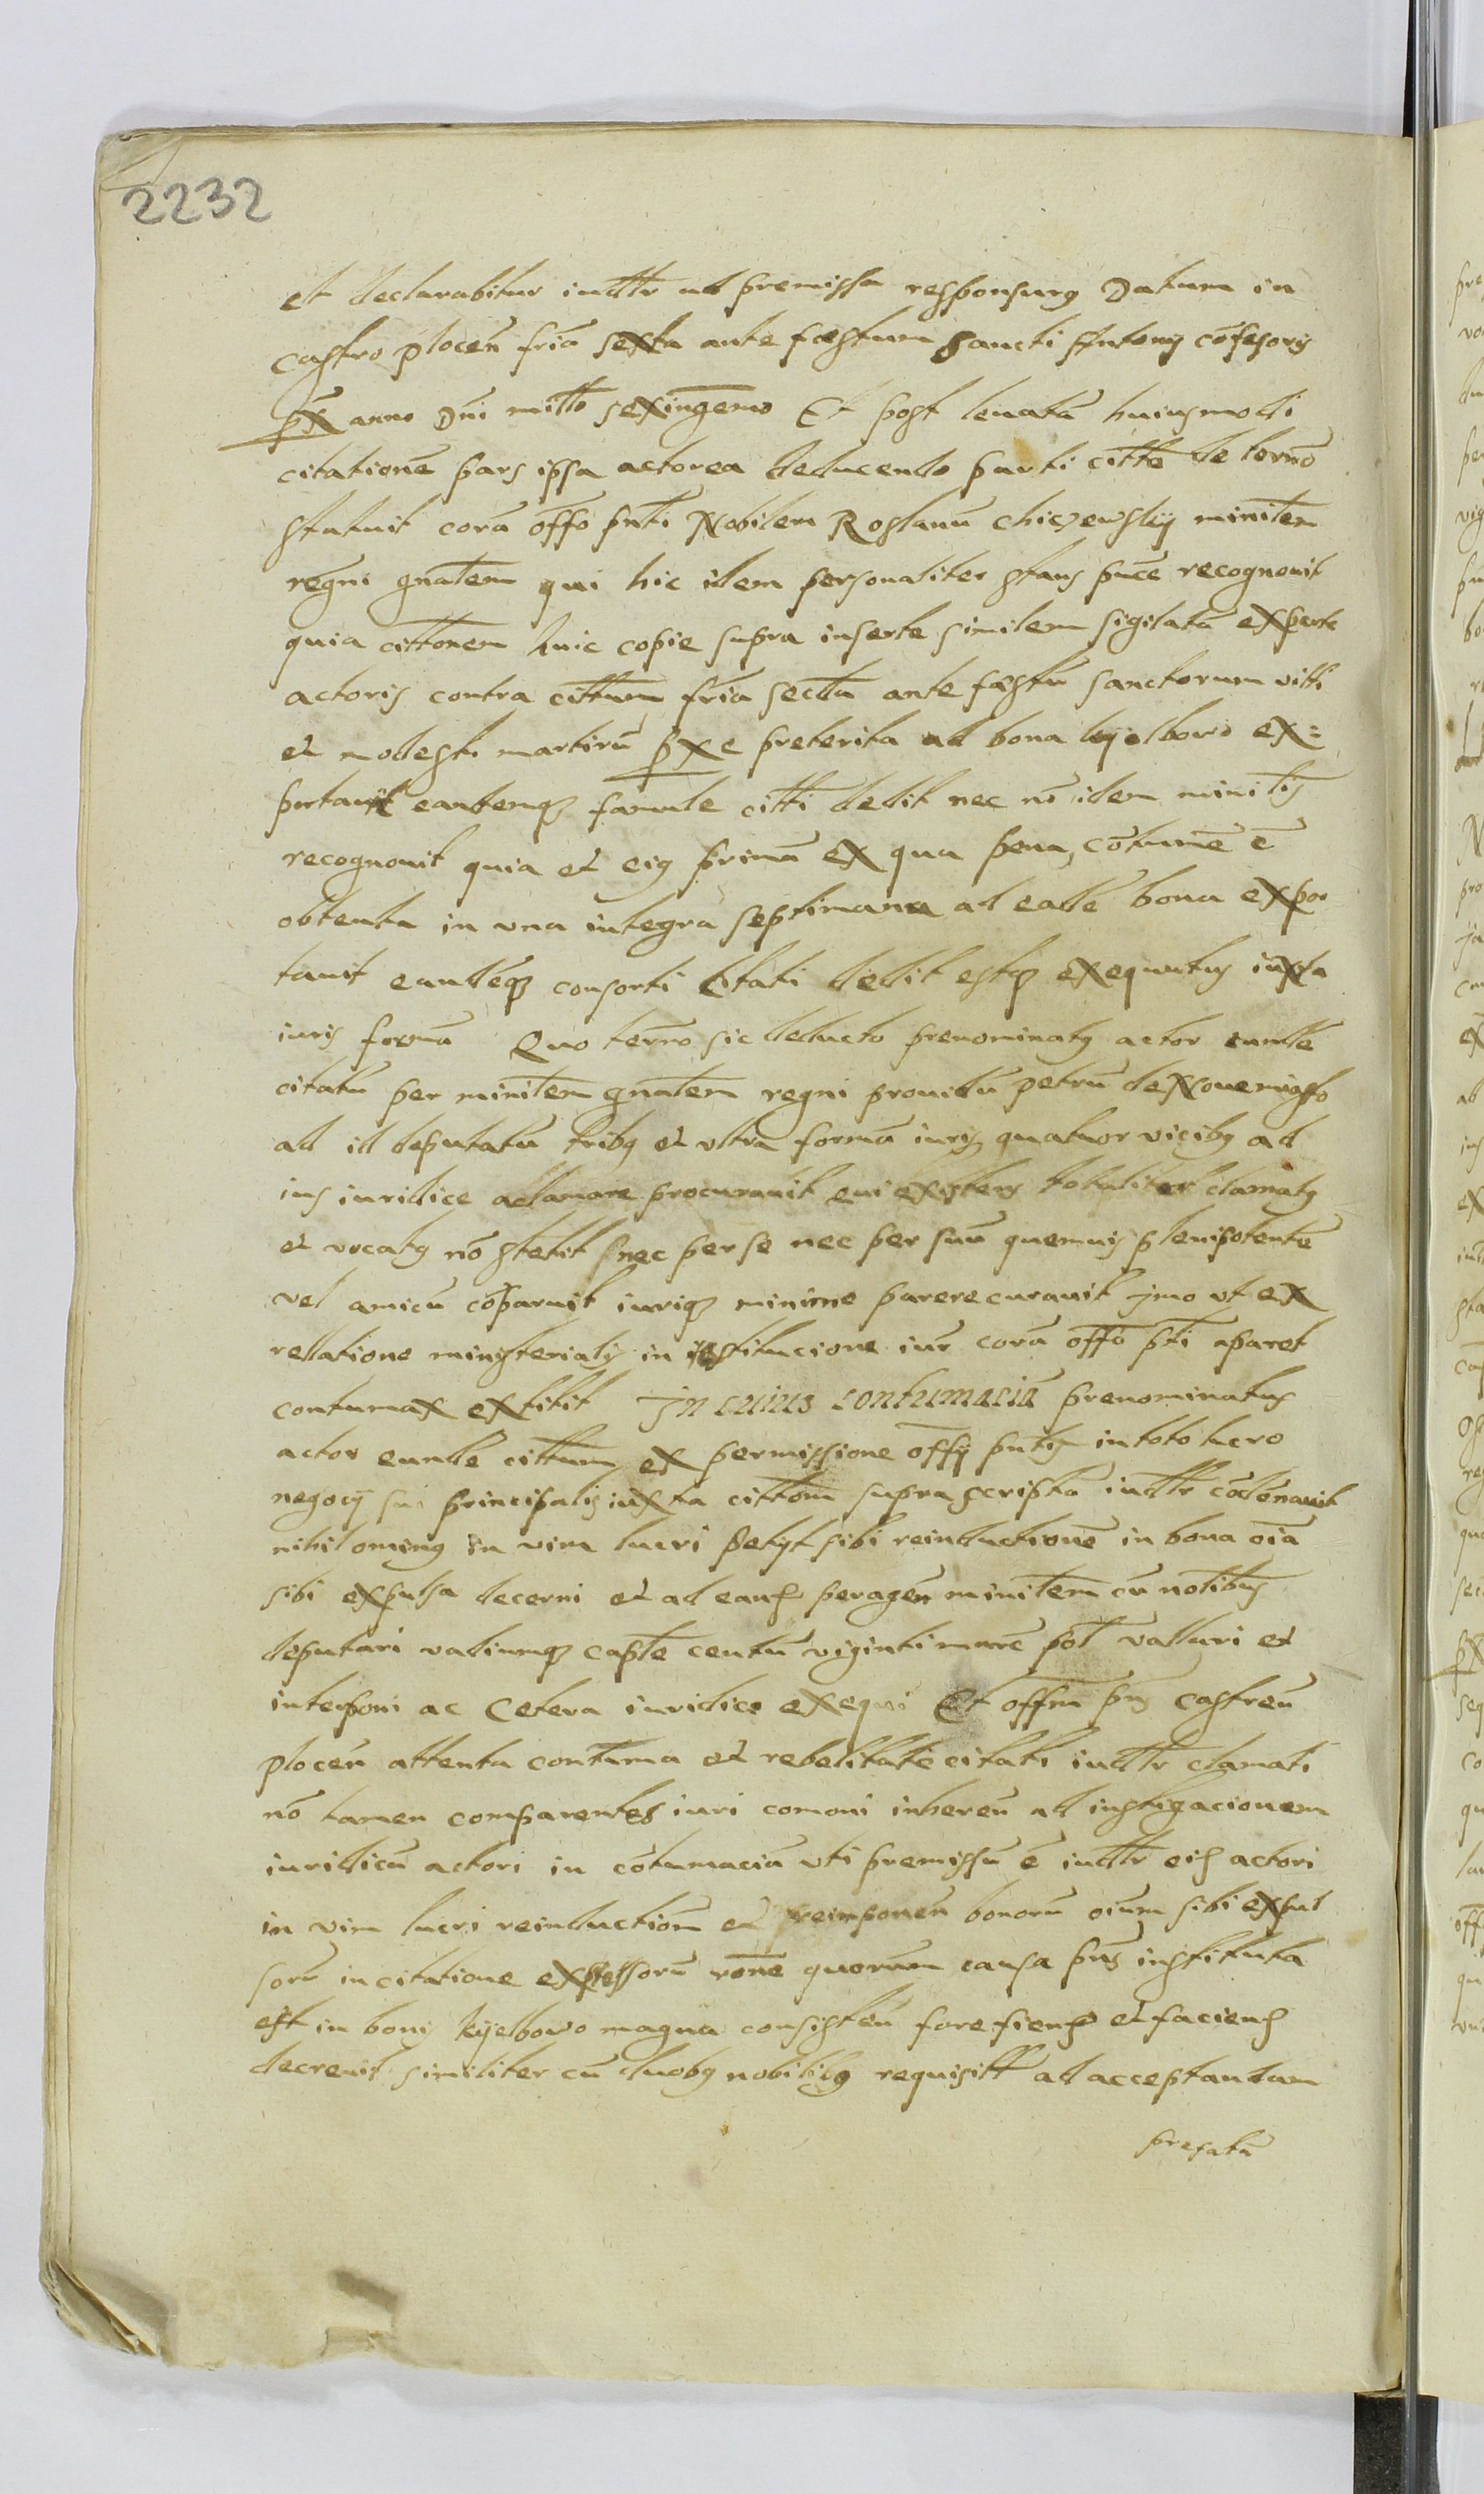 2232
et declarabitur iudltr ad premissa responsurus Datum in
castro plocen̄ fr̄ia sexta ante festum Sancti Antony cōfesoris
px̄ anno Dn̄i millo sexingēmo Et post leuatā huiusmodi
citationē pars ipsa actorea deducendo parti cittē de termō
statuit corā offo pn̄ti Nobilem Roslanū chiczewsky minitēm
regni gnālem qui hic idem personaliter stans pn̄ce recognouit
quia cittōnem huic copie supra inserte similem sigilatā ex parte
actoris contra cittum fr̄ia secda ante festū sanctorum viti
et modesti martirū px̄e preterita ad bona kyelbowo ex=
portauit eandemq famule citti dedit nec nō idem minitīs
recognouit quia et eius primā ex qua pena cōtumē ē
obtenta in vna integra septimana ad eadē bona expor
tauit eandēq consorti Citati dedit estq exequutus iuxta
iuris formā Quo termo sic deducto prenominatus actor eundē
citatū per minitēm gnālem regni prouidū petrū de Nouemiasto
ad id deputatū tribus et vltra formā iuris quatuor vicibus ad
ius iuridice aclamare procurauit qui existens totaliter clamatus
et vocatus nō stetit nec per se nec per suū quemuis plenipotentē
vel amicū cōparuit iuriq minime parere curauit jmo vt ex
relatione ministerialis in restitucione iur̄ corā offo pn̄ti aparet
contumax extitit Jn cuius contumaciā prenominatus
actor eundē cittum ex permissione offy pn̄tis in toto lucro
negocij sui principalis iuxta cittōm supra scriptā iudltr cōdēnauit
nihilominus in vim lucri petyt sibi reinductionē in bona oīa
sibi expulsa decerni et ad eand peragen̄ minitēm cū nobilibus
deputari vadiumq captē centū viginti marc̄ pol̄ valluri et
interponi ac Cetera iuridice exequi Et offm̄ pn̄s castren̄
plocen̄ attenta contūma et rebelitatē citati iudltr clamati
nō tamen comparentes iuri comoni inheren̄ ad instigacionem
iuridicū actori in cōtumaciā vti premissū ē iudltr eid actori
in vim lucri reinductiōm et reimponen̄ bonorū oīum sibi expul
sorū in citatione expressorū rōne quorum causa pn̄s instituta
est in bonis kyelbowo magna consisten̄ fore fiend et faciend
decreuit similiter cū duobus nobilibus requisitt ad acceptandam
prefatā